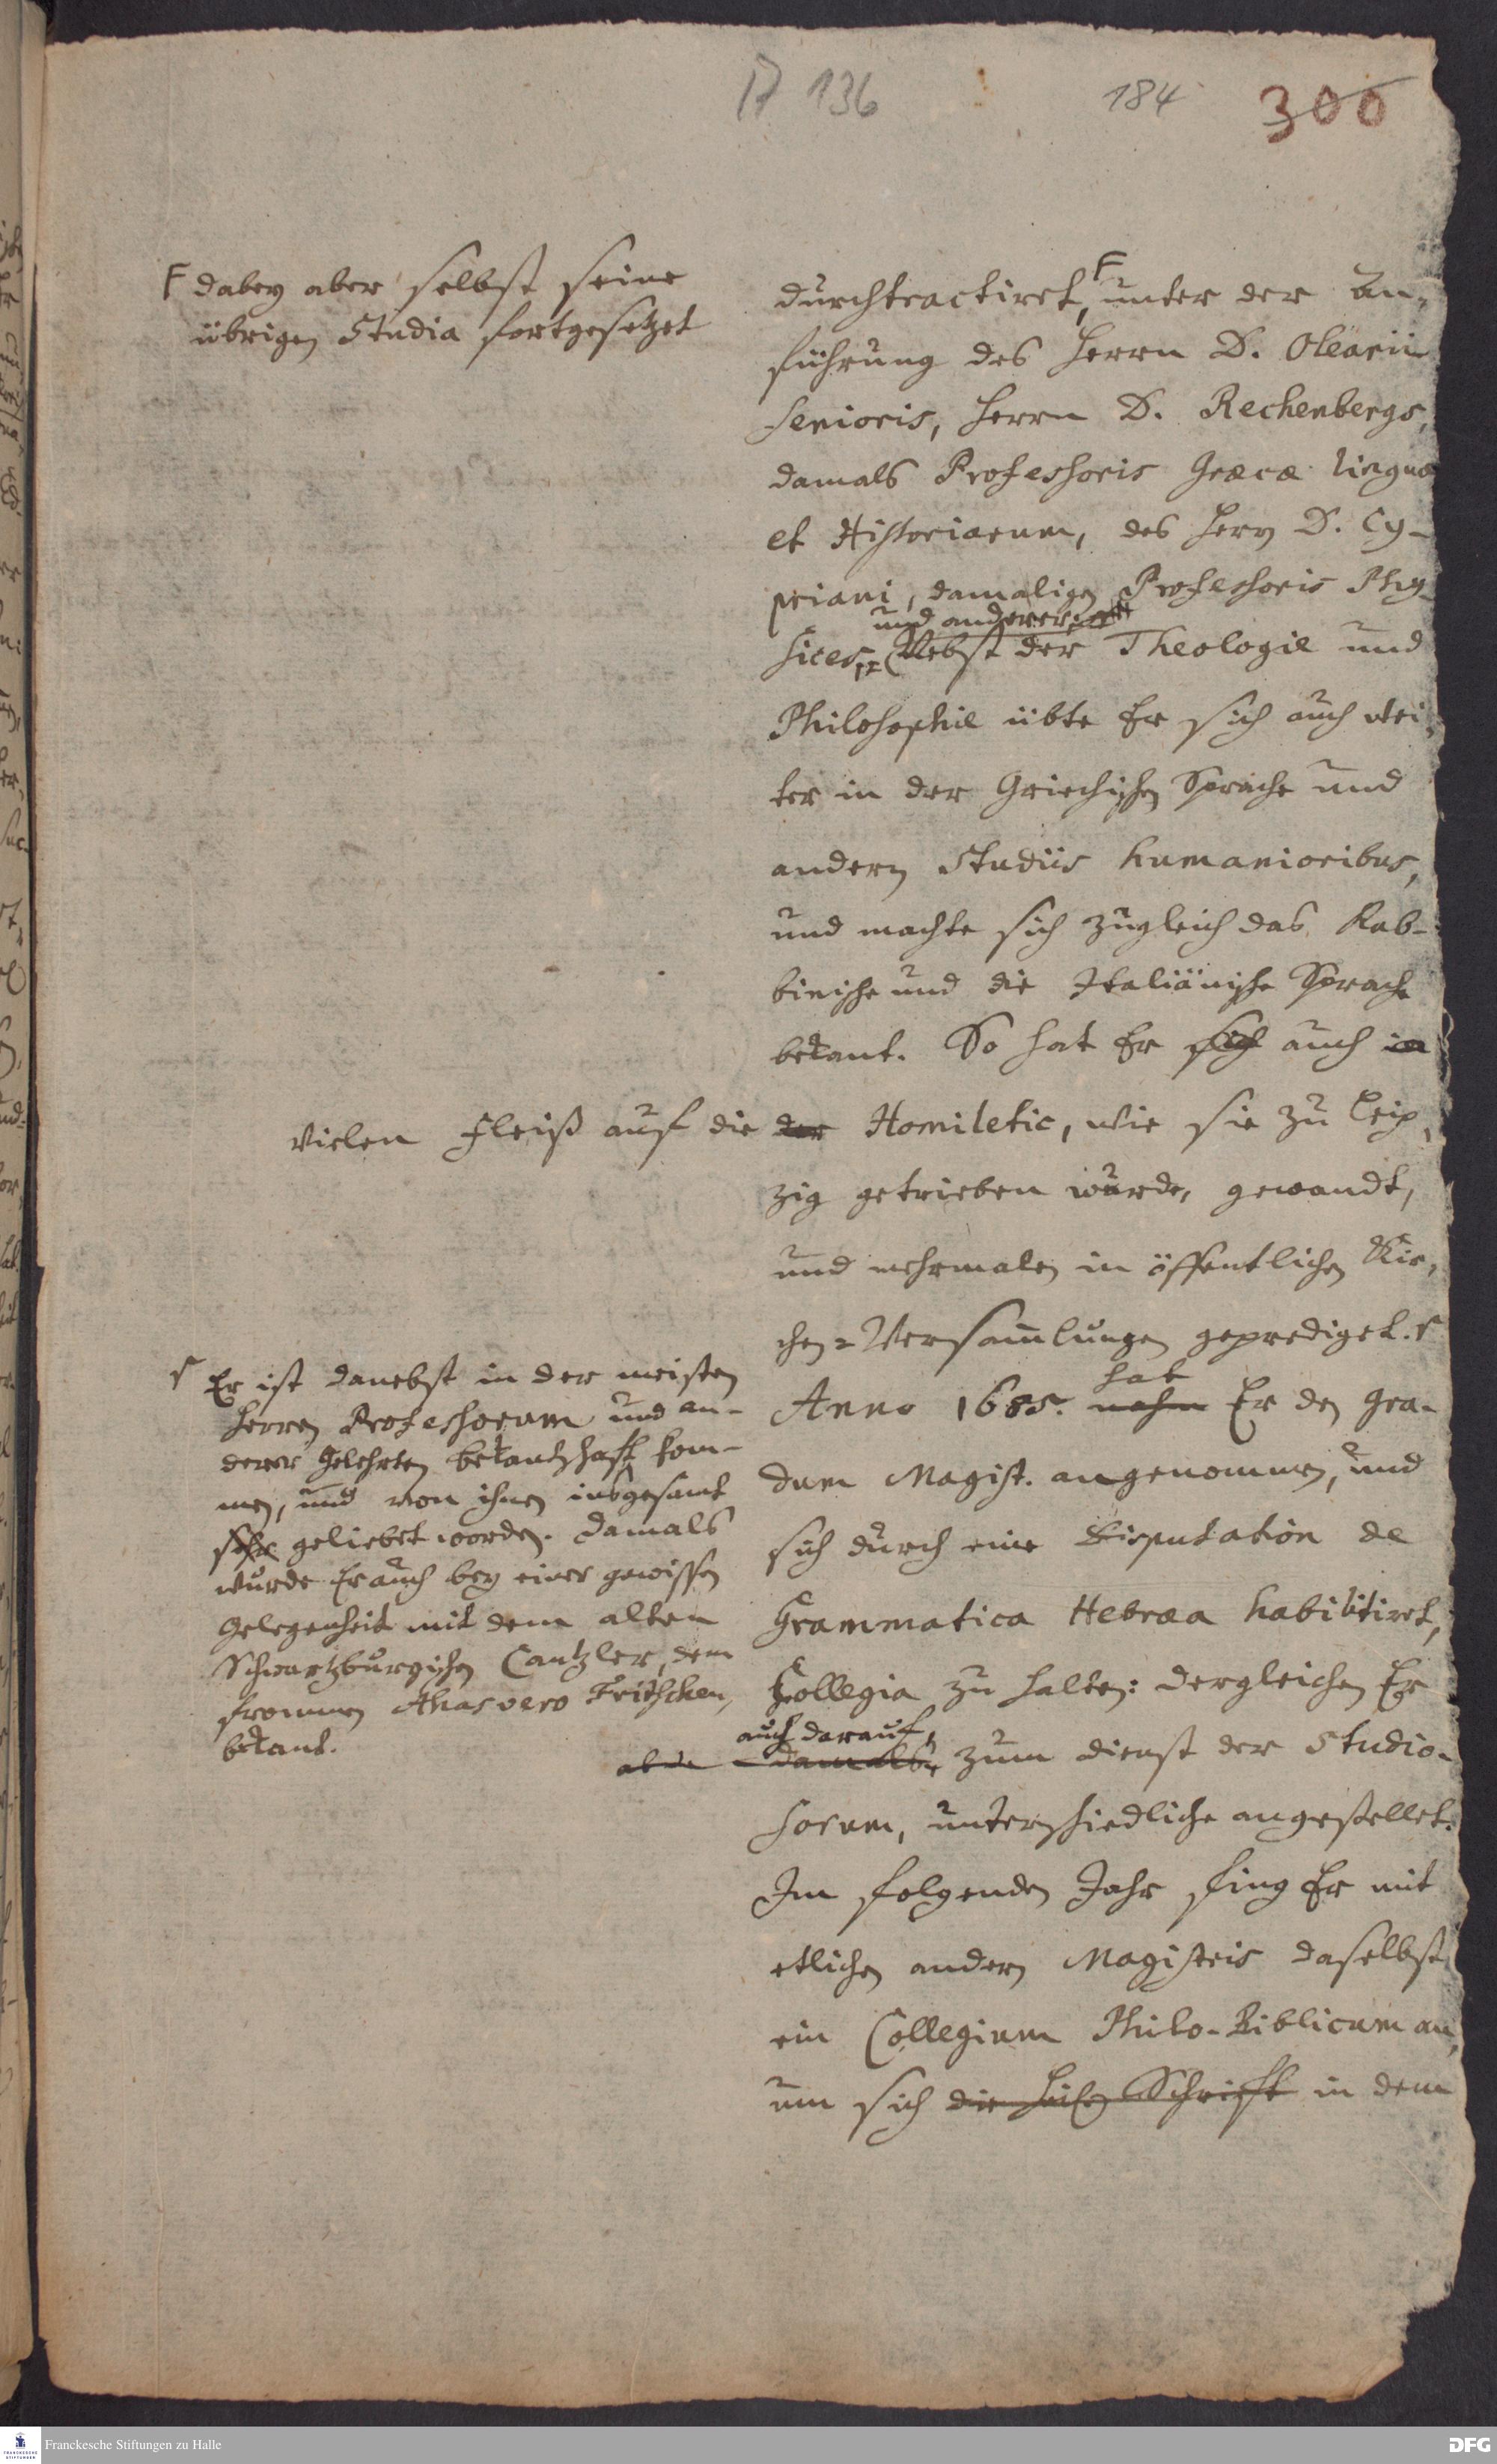 D 136
184
300
F dabey aber selbst seine
übrigen Studia fortgesetzet
durchtractiret, F unter der An-
führung des Herrn D. Olearii
senioris, Herrn D. Rechenbergs,
damals Professoris Græcæ linguæ
et Historiarum, des Herrn D. Cy-
priani, damaligen Professoris Phy-
und anderer
sices, Nebst der Theologie und
Philosophie übte Er sich auch wei-
ter in der Griechischen Sprache und
andern Studiis humanioribus,
und machte sich zugleich das Rab-
binische und die Italiänische Sprache
bekant. So hat Er sich auch in
vielen Fleiß auf die der Homiletic, wie sie zu Leip-
zig getrieben wurde, gewandt,
und mehrmalen in öffentlichen Kir-
chen-Versammlungen geprediget.
Er ist danebst in der meisten
Herren Professorum und an-
derer Gelehrten bekantschaft kom-
men, und von ihnen insgesamt
sehr geliebet worden. Damals
wurde Er auch bey einer gewissen
Gelegenheit mit dem alten
Schwartzburgischen Cantzler, dem
frommen Ahasvero Fritschen,
bekant.
hat
Anno 1685. nahm Er den Gra-
dum Magist. angenommen, und
sich durch eine Disputation de
Grammatica Hebræa habilitiret,
Collegia zu halten: dergleichen Er
auch darauf,
damals, zum dienst der Studio-
sorum, unterschiedliche angestellet.
Im folgenden Jahr fing Er mit
etlichen andern Magistris daselbst
ein Collegium Philo-Biblicum an,
um sich die Heil. Schrift in dem
Franckesche Stiftungen zu Halle
DFG